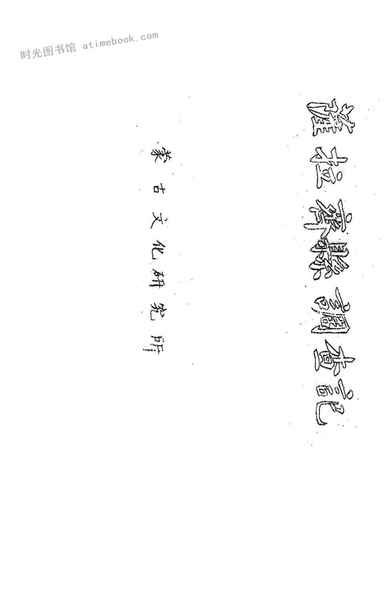 时光图书馆 atimebook.com
薩拉齊縣調查記
蒙古文化研究所